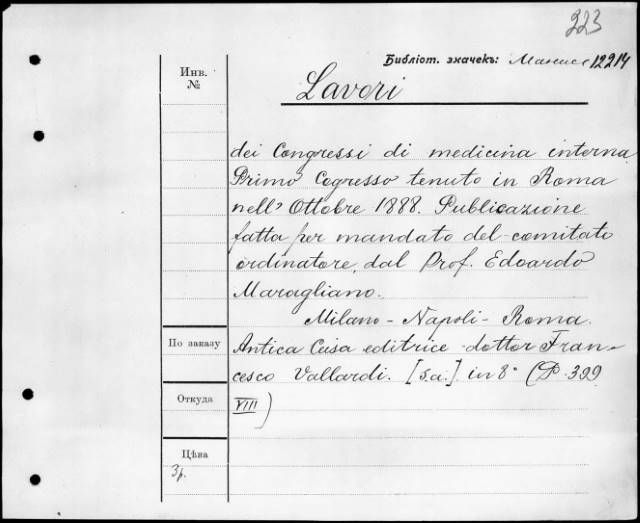 323
Библіот. значекъ: Манасс 12214
Инв.
№
Lavori
dei Congressi di medicina interna
Primo Cogresso tenuto in Roma
nell' Ottobre 1888. Publicazione
fatta per mandato del comitato
ordinatore, dal Prof. Edoardo
Maragliano.
Milano - Napoli - Roma.
По заказу
Antica Casa editrice dottor Fran-
cesco Vallardi. [s.a.] in 8° (P. 399
Откуда
VIII)
Цѣна
3р.